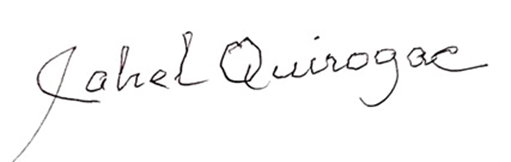 Jahel Quiroga